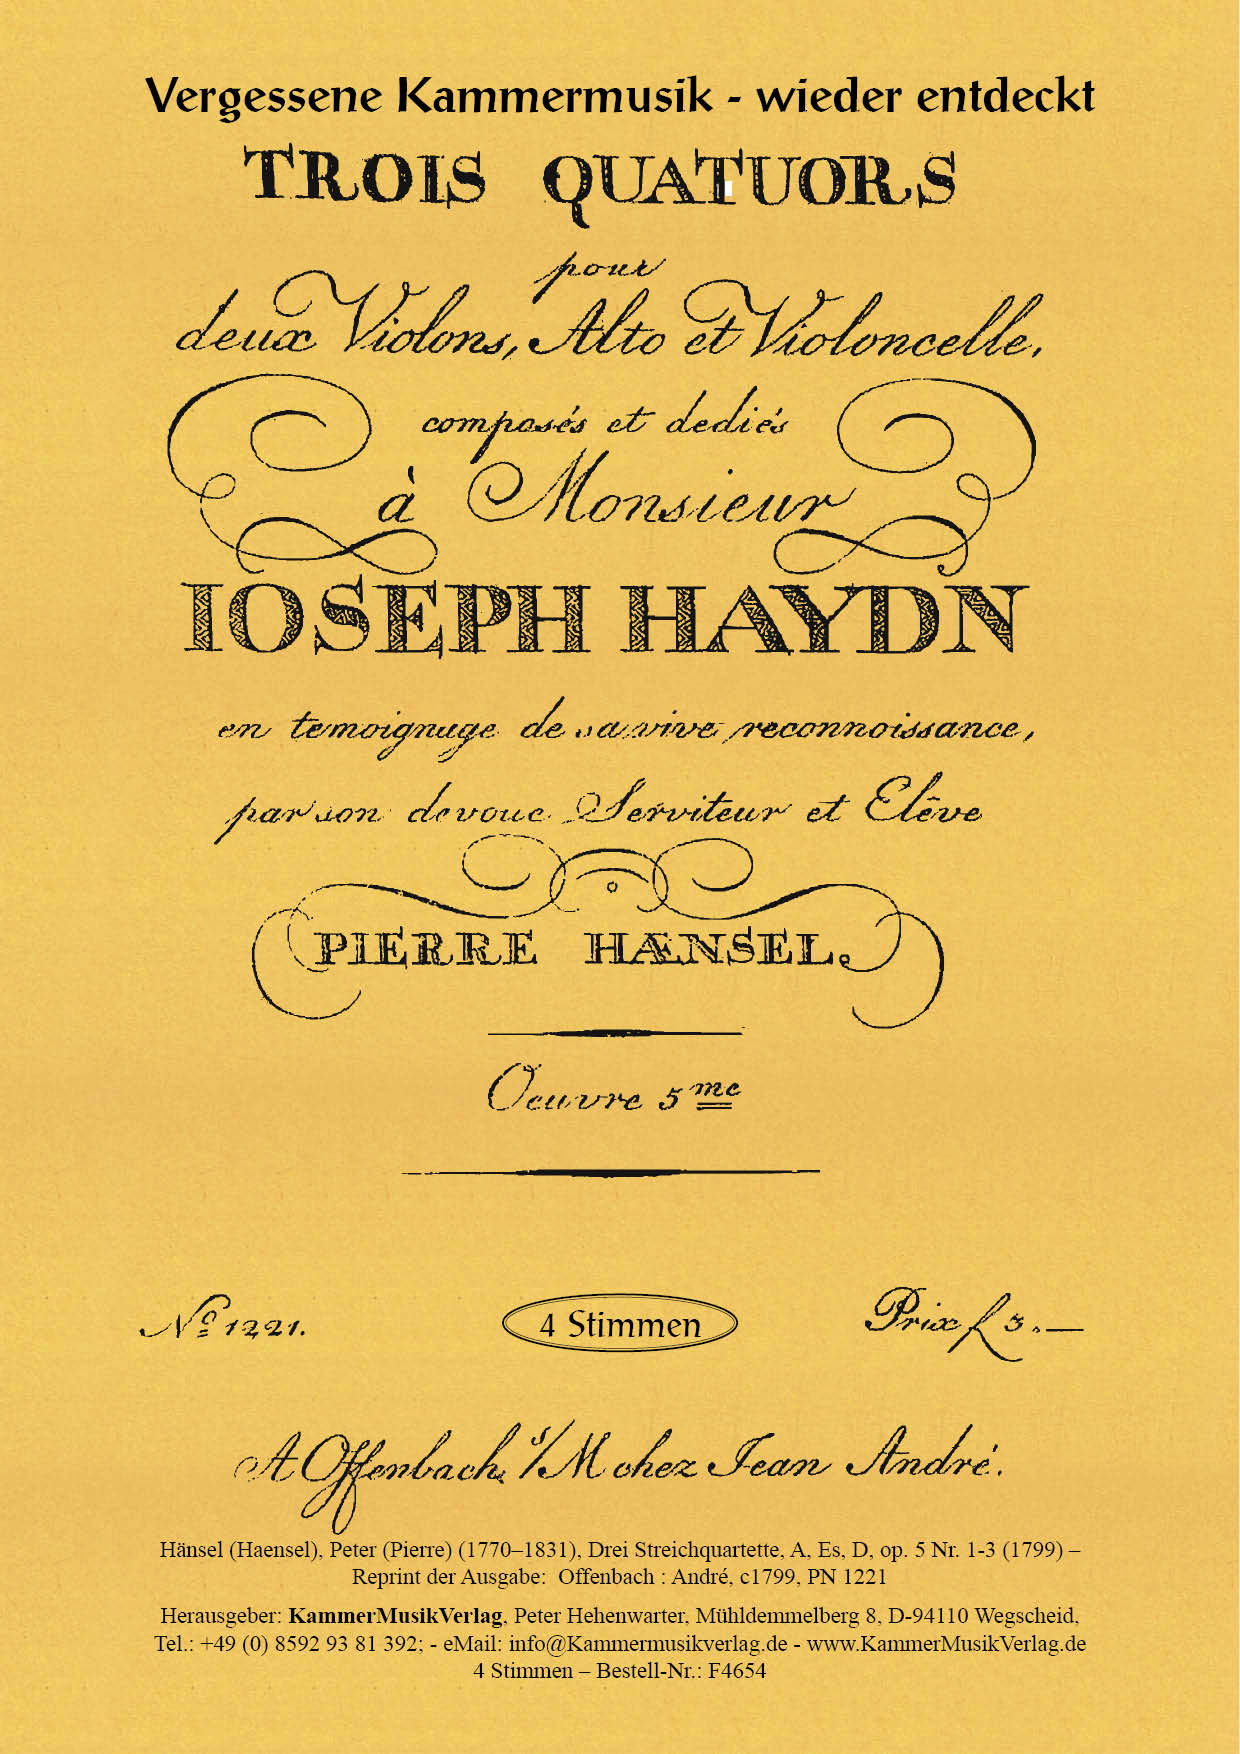 Vergessene Kammermusik - wieder entdeckt
TROIS QUATUORS
pour
deux Violons, Alto et Violoncelle,
composés et dediés
à Monsieur
IOSEPH HAYDN
en temoignage de sa vive reconnoissance,
par son devoue Serviteur et Elêve
PIERRE HÆNSEL.
Oeuvre 5me
No 1221.
4 Stimmen
Prix f 3.—
A Offenbach s/M chez Jean André.
Hänsel (Haensel), Peter (Pierre) (1770–1831), Drei Streichquartette, A, Es, D, op. 5 Nr. 1-3 (1799) –
Reprint der Ausgabe: Offenbach : André, c1799, PN 1221
Herausgeber: KammerMusikVerlag, Peter Hehenwarter, Mühldemmelberg 8, D-94110 Wegscheid,
Tel.: +49 (0) 8592 93 81 392; - eMail: info@Kammermusikverlag.de - www.KammerMusikVerlag.de
4 Stimmen – Bestell-Nr.: F4654